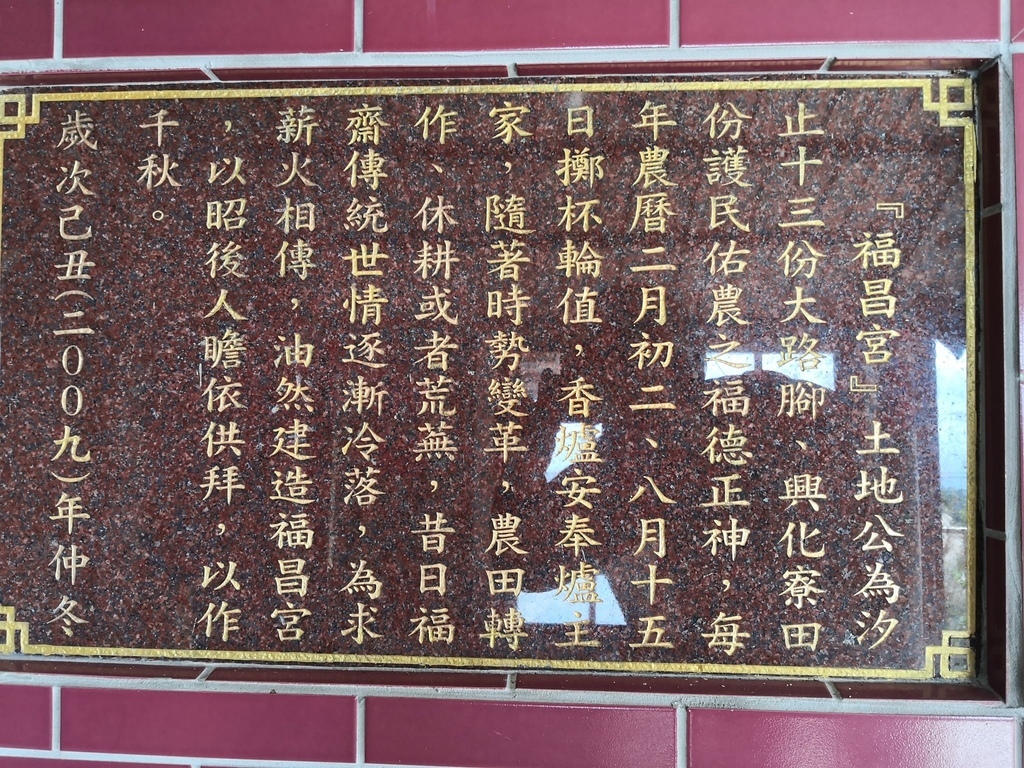 『福昌宮』土地公為汐
止十三份大路腳、興化寮田
份護民佑農之福德正神，每
年農曆二月初二、八月十五
日擲杯輪值，香爐安奉爐主
家，隨著時勢變革，農田轉
作、休耕或者荒蕪，昔日福
齋傳統世情逐漸冷落，為求
薪火相傳，油然建造福昌宮
，以昭後人瞻依供拜，以作
千秋。
歲次己丑(二00九)年仲冬